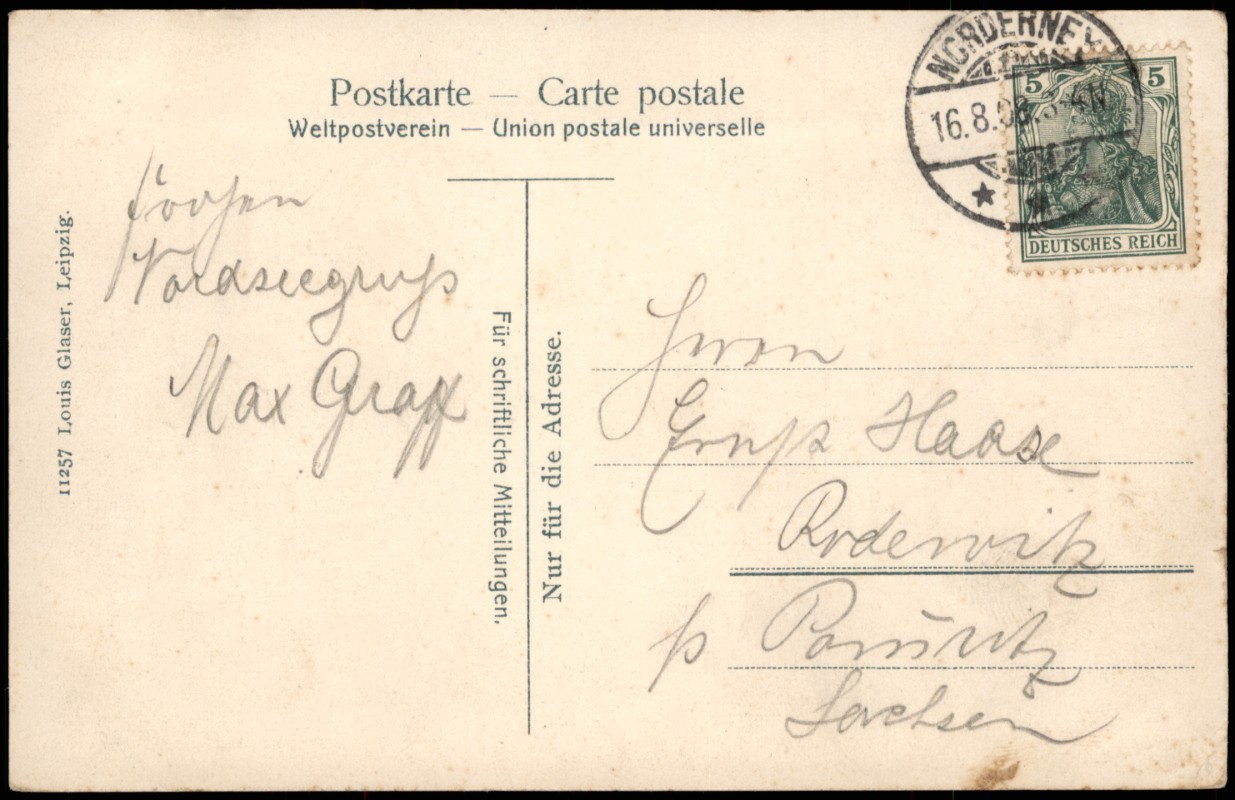 Postkarte — Carte postale
Weltpostverein — Union postale universelle
NORDERNEY
16.8.08.3-4N
5 5
DEUTSCHES REICH
11257 Louis Glaser, Leipzig.
Nordseegruß
Max Graff
Für schriftliche Mitteilungen.
Nur für die Adresse.
Herrn
Ernst Haase
Rodewitz
p Pommritz
Sachsen